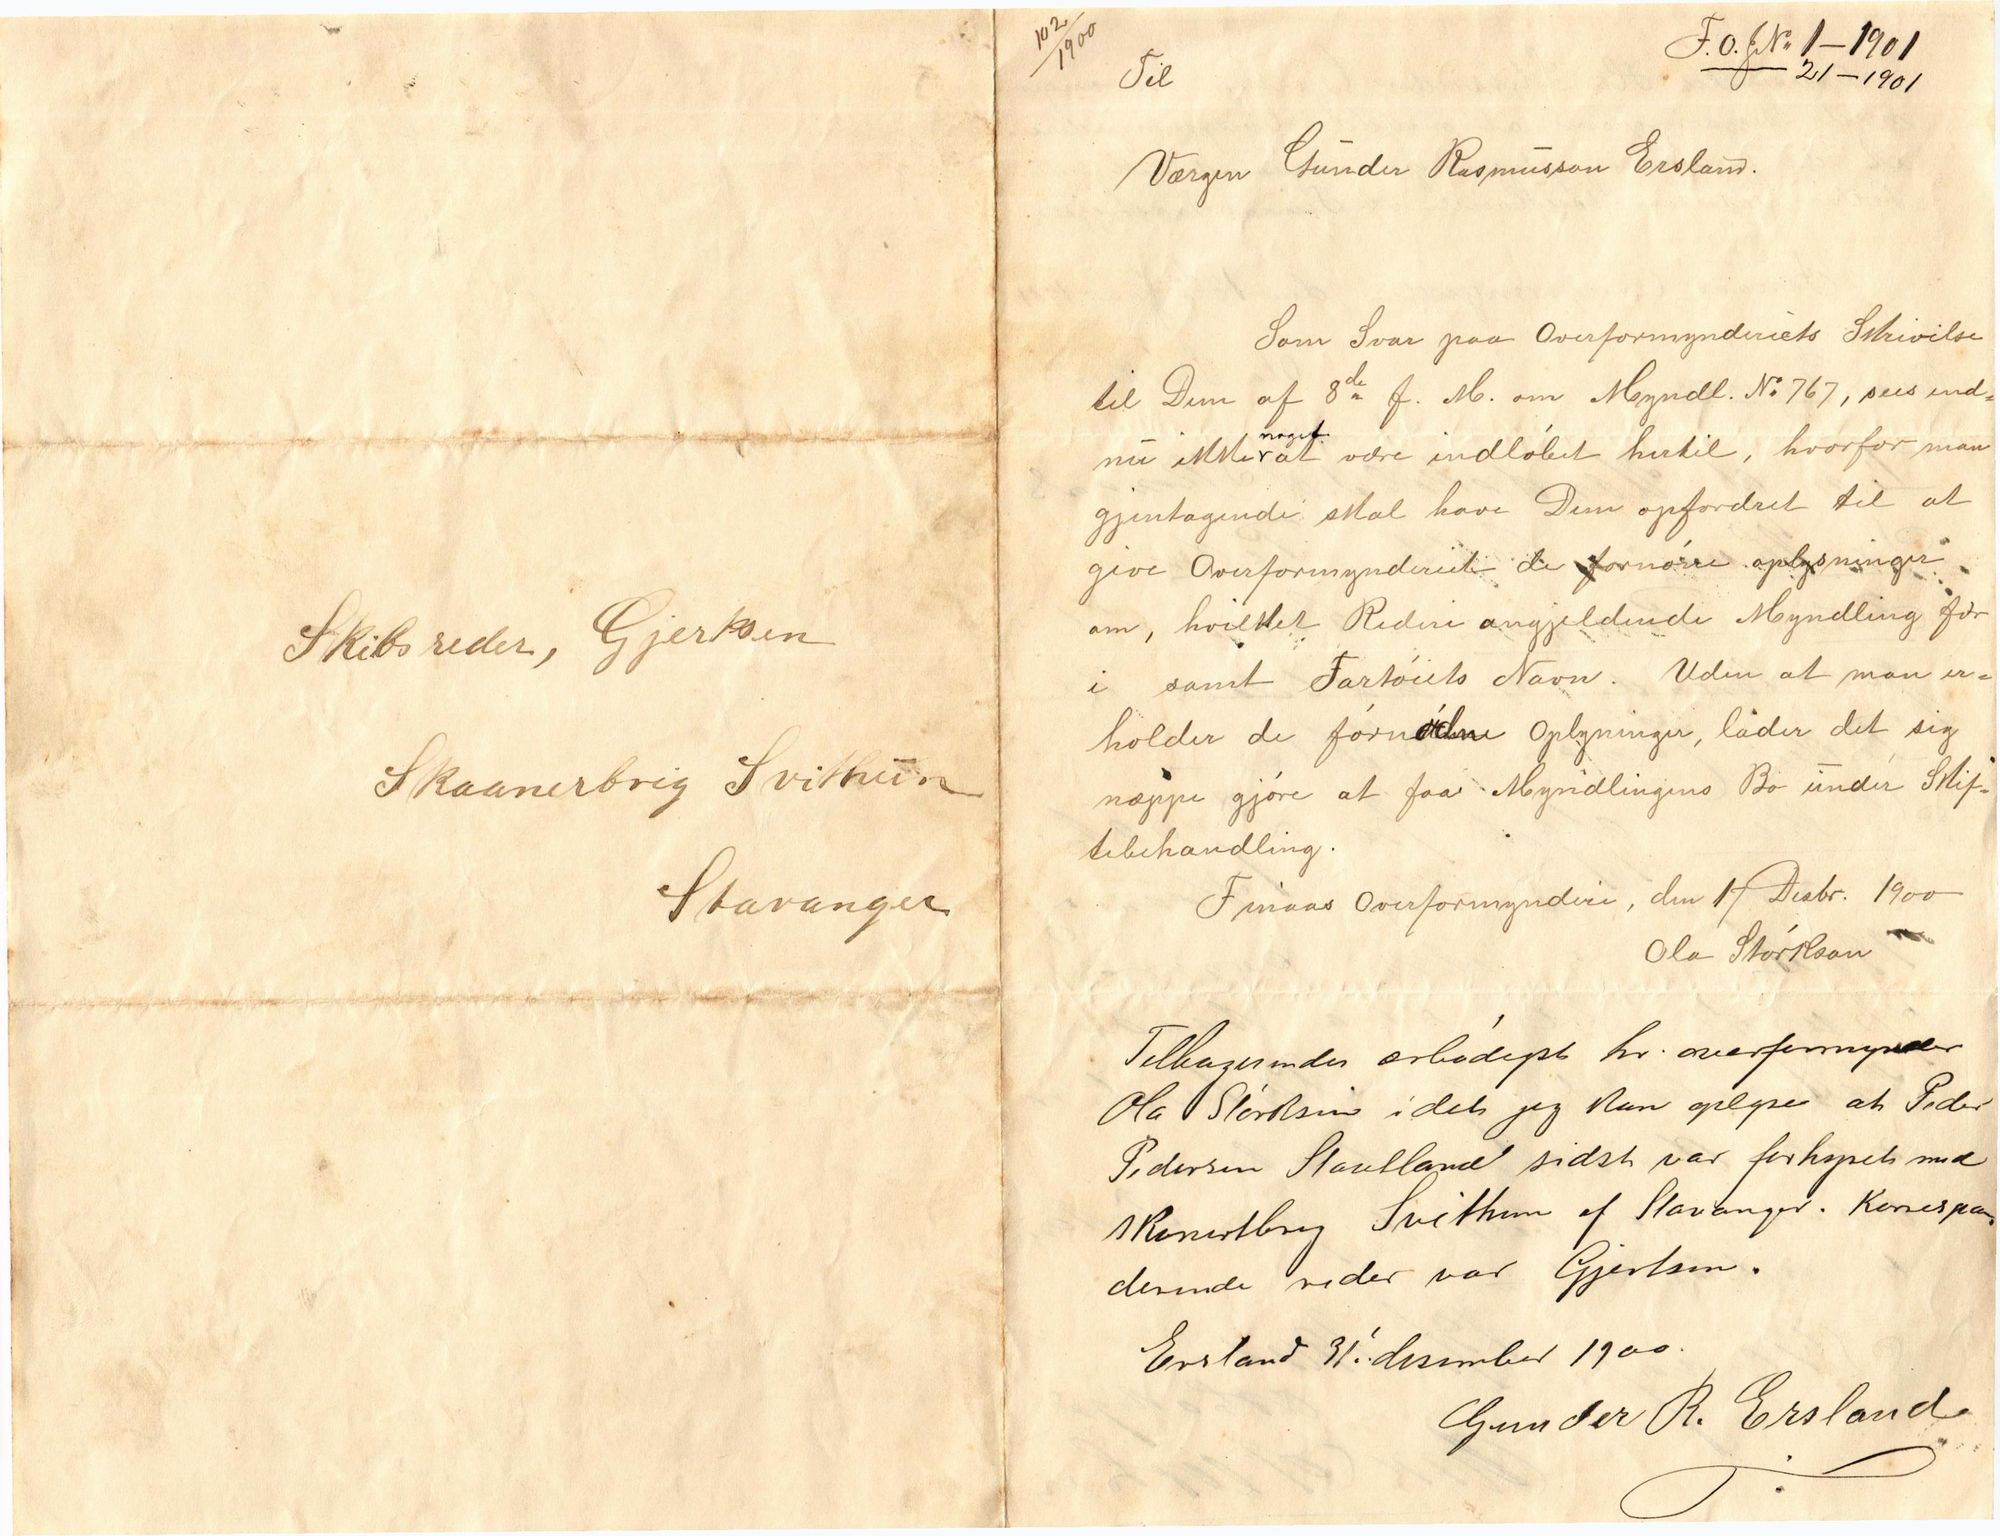 Skibsreder, Gjertsen
Skaanerbrig Svithun
Stavanger
102/1900
F.O.J.No. 1-1901
21-1901
Til
Værgen Gunder Rasmusson Ersland.
Som Svar paa Overformynderiets Skrivilse
til Dem af 8de f. M. om Myndl. No 767, sees end-
nu ikke noget at være indløbet hertil, hvorfor man
gjentagende skal have Dem opfordret til at
give Overformynderiet de fornørne oplysninger
om, hvilket Rederi angjeldende Myndling før
i samt Fartøiets Navn. Uden at man er-
holder de fornødne Oplyninger, lader det sig
næppe gjøre at faa Myndlingens Bo under Skif-
tebehandling.
Finaas Overformynderi, den 17 Desbr. 1900
Ola Størkson
Tilbagesendes ærbødigst hr. overformynder
Ola Størksen idet jeg kan oplyse at Peder
Pedersen Stautland sidst var forhyret med
skonertbrig Svithun af Stavanger. Korrespon
derende reder var Gjertsen.
Ersland 31. desember 1900.
Gunder R. Ersland